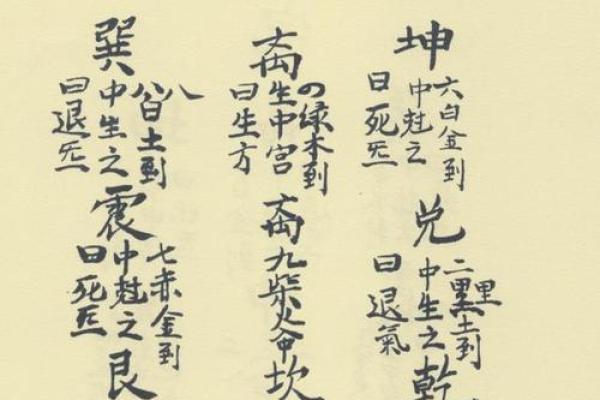 坤
六白金到
中尅之
曰死炁
兌
二黑土到
中生之
曰退氣
乾
离
四绿木到
生中宮
曰生方
离九柴火命坎
巽
八白土到
中生之
曰退炁
震
七赤金到
中尅之
曰死炁
艮